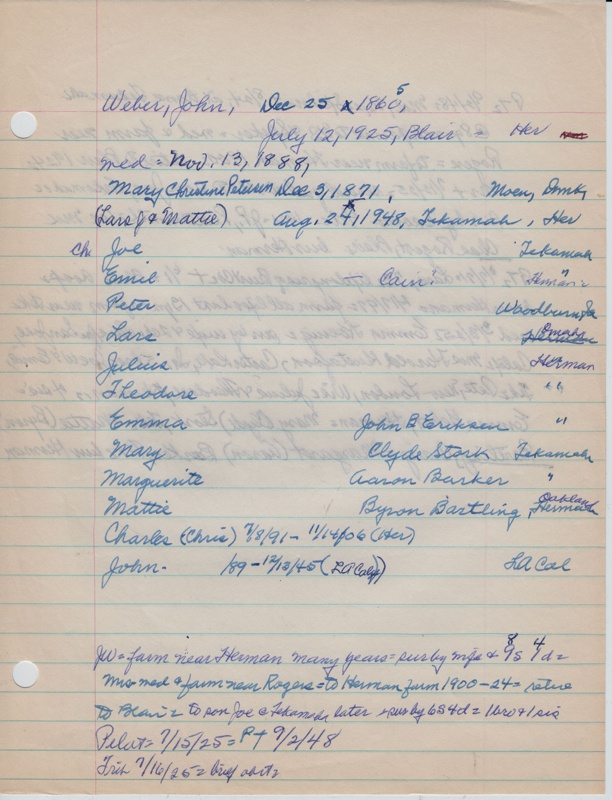 Weber, John, Dec 25 x 1860, 5
July 12, 1925, Blair = Her
med = Nov. 13, 1888,
Mary Christine Petersen Dec 3, 1871, Moen, Dmk,
(Lars J & Mattie) Aug. 27, 1948, Tekamah, Her
Ch. Joe Tekamah
Emil — Cain? Herman =
Peter Woodburn,
Lars Omaha
Julius Herman
Theodore " "
Emma John B Erickson "
Mary Clyde Stork Tekamah
Marguerite Aaron Barker "
Mattie Byron Bartling, Oakland
Charles (Chris) 7/8/91 - 11/14/06 (Her)
John - /89 - 12/13/45 (LA Calif) LA Cal
JW = farm near Herman many years = sur by wife & 8 9s 4 d =
Mrs = med & farm near Rogers = to Herman farm 1900-24 = retire
to Blair = to son Joe @ Tekamah later = sur by 6s 4d = 1 bro + 1 sis
Pilot = 7/15/25 = P+ 9/2/48
Trib 7/16/25 = brief obit =